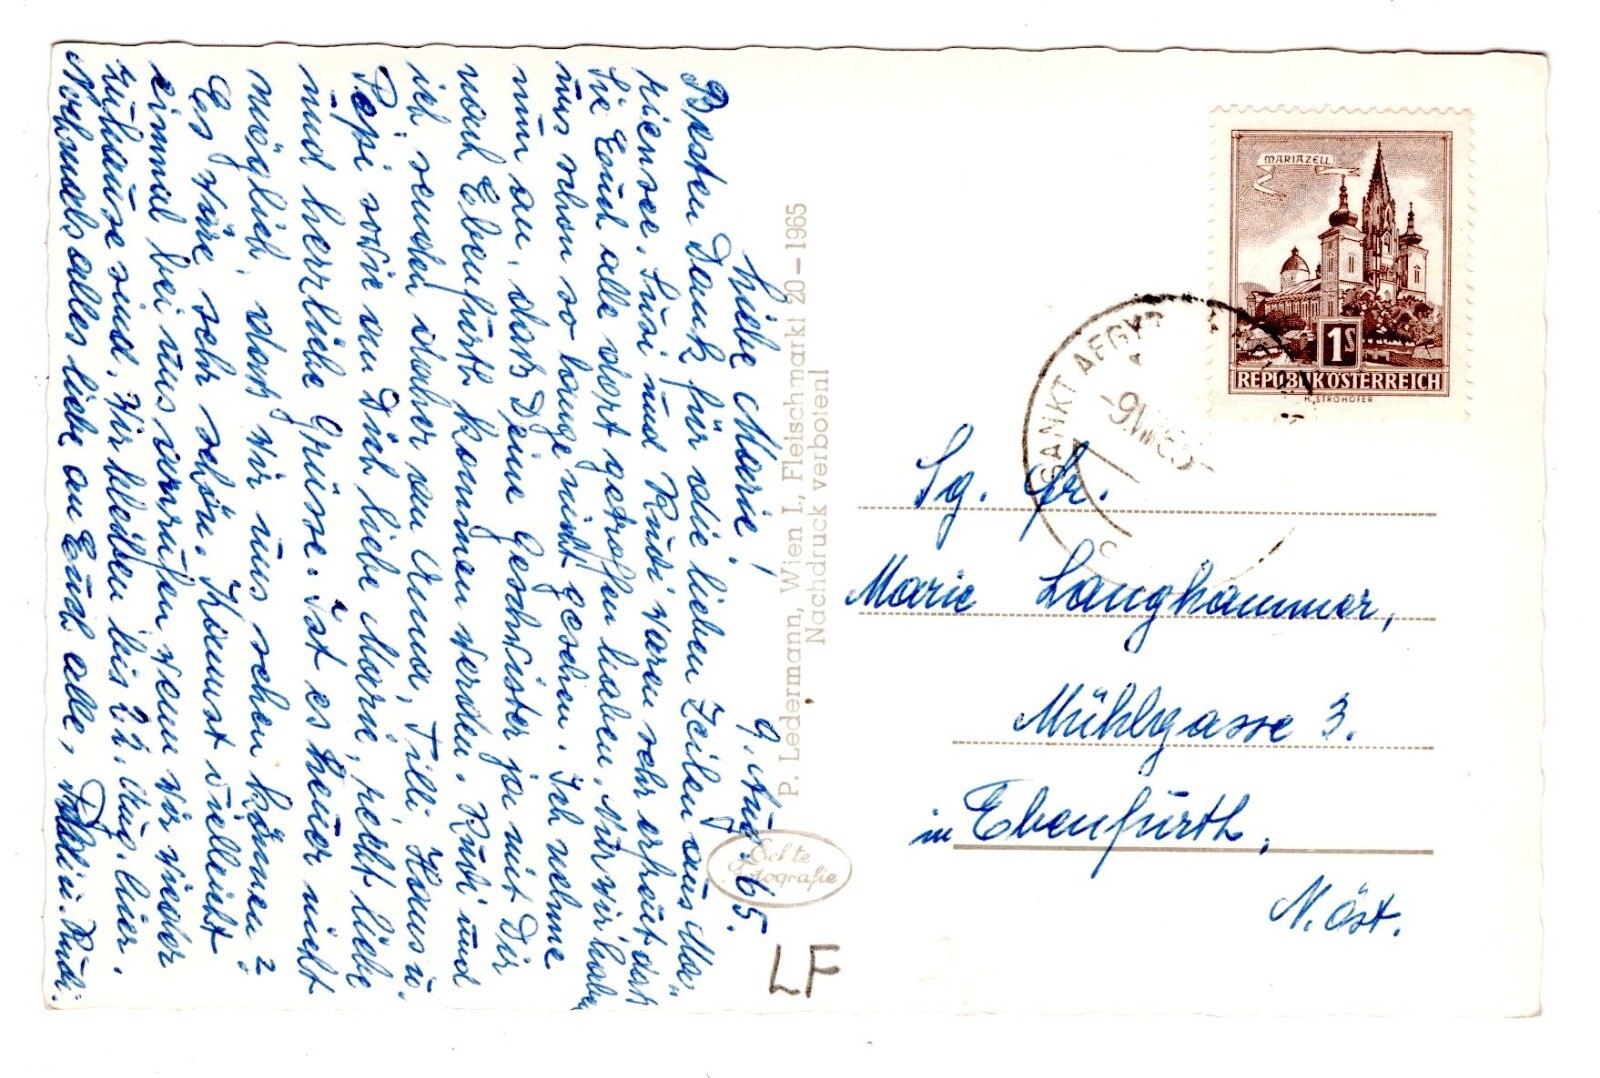 9. Aug. 65.
Liebe Marie!
Besten Dank für die lieben Zeilen aus Ma-
riensee. Susi und Rudi waren sehr erfreut daß
sie Euch alle dort getroffen haben. Nur wir haben
uns schon so lange nicht gesehen. Ich nehme
nun an, daß Deine Geschwister ja mit Dir
nach Ebenfurth kommen werden. Rudi und
ich senden daher an Anna, Tilli, Hans u.
Pepi sowie an Dich liebe Marie, recht liebe
und herzliche Grüsse. Ist es heuer nicht
möglich, daß wir uns sehen können?
Es wäre sehr schön. Kannst vielleicht
einmal bei uns anrufen wenn wir wieder
zuhause sind. Wir bleiben bis 22. Aug. hier.
Nochmals alles liebe an Euch alle, Poldi u. Rudi.
P. Ledermann, Wien I., Fleischmarkt 20 – 1965
Nachdruck verboten!
Echte
Fotografie
LF
MARIAZELL
1S
REPUBLIK ÖSTERREICH
H. STROHOFER
SANKT AEGYD
-9.VIII.65-
Sg. Fr.
Marie Langhammer,
Mühlgasse 3.
in Ebenfurth,
N. Öst.